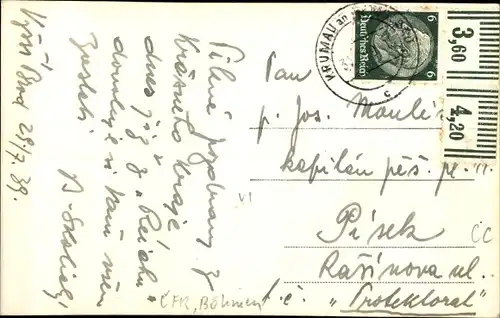 Vyšší Brod 28/7 39.
Pilné pozdravy z
krásného kraje
dnes již z "Reichu"
dovoluje si Vám všem
zaslati
KRUMAU an der
Deutsches Reich
6 6
3,60
4,20
Pan
p. Jos.
kapitán pěš. pl. 11.
Písek
Rašínova ul.
t.č. "Protektorat"
VI
CC
ČFR, Böhmen